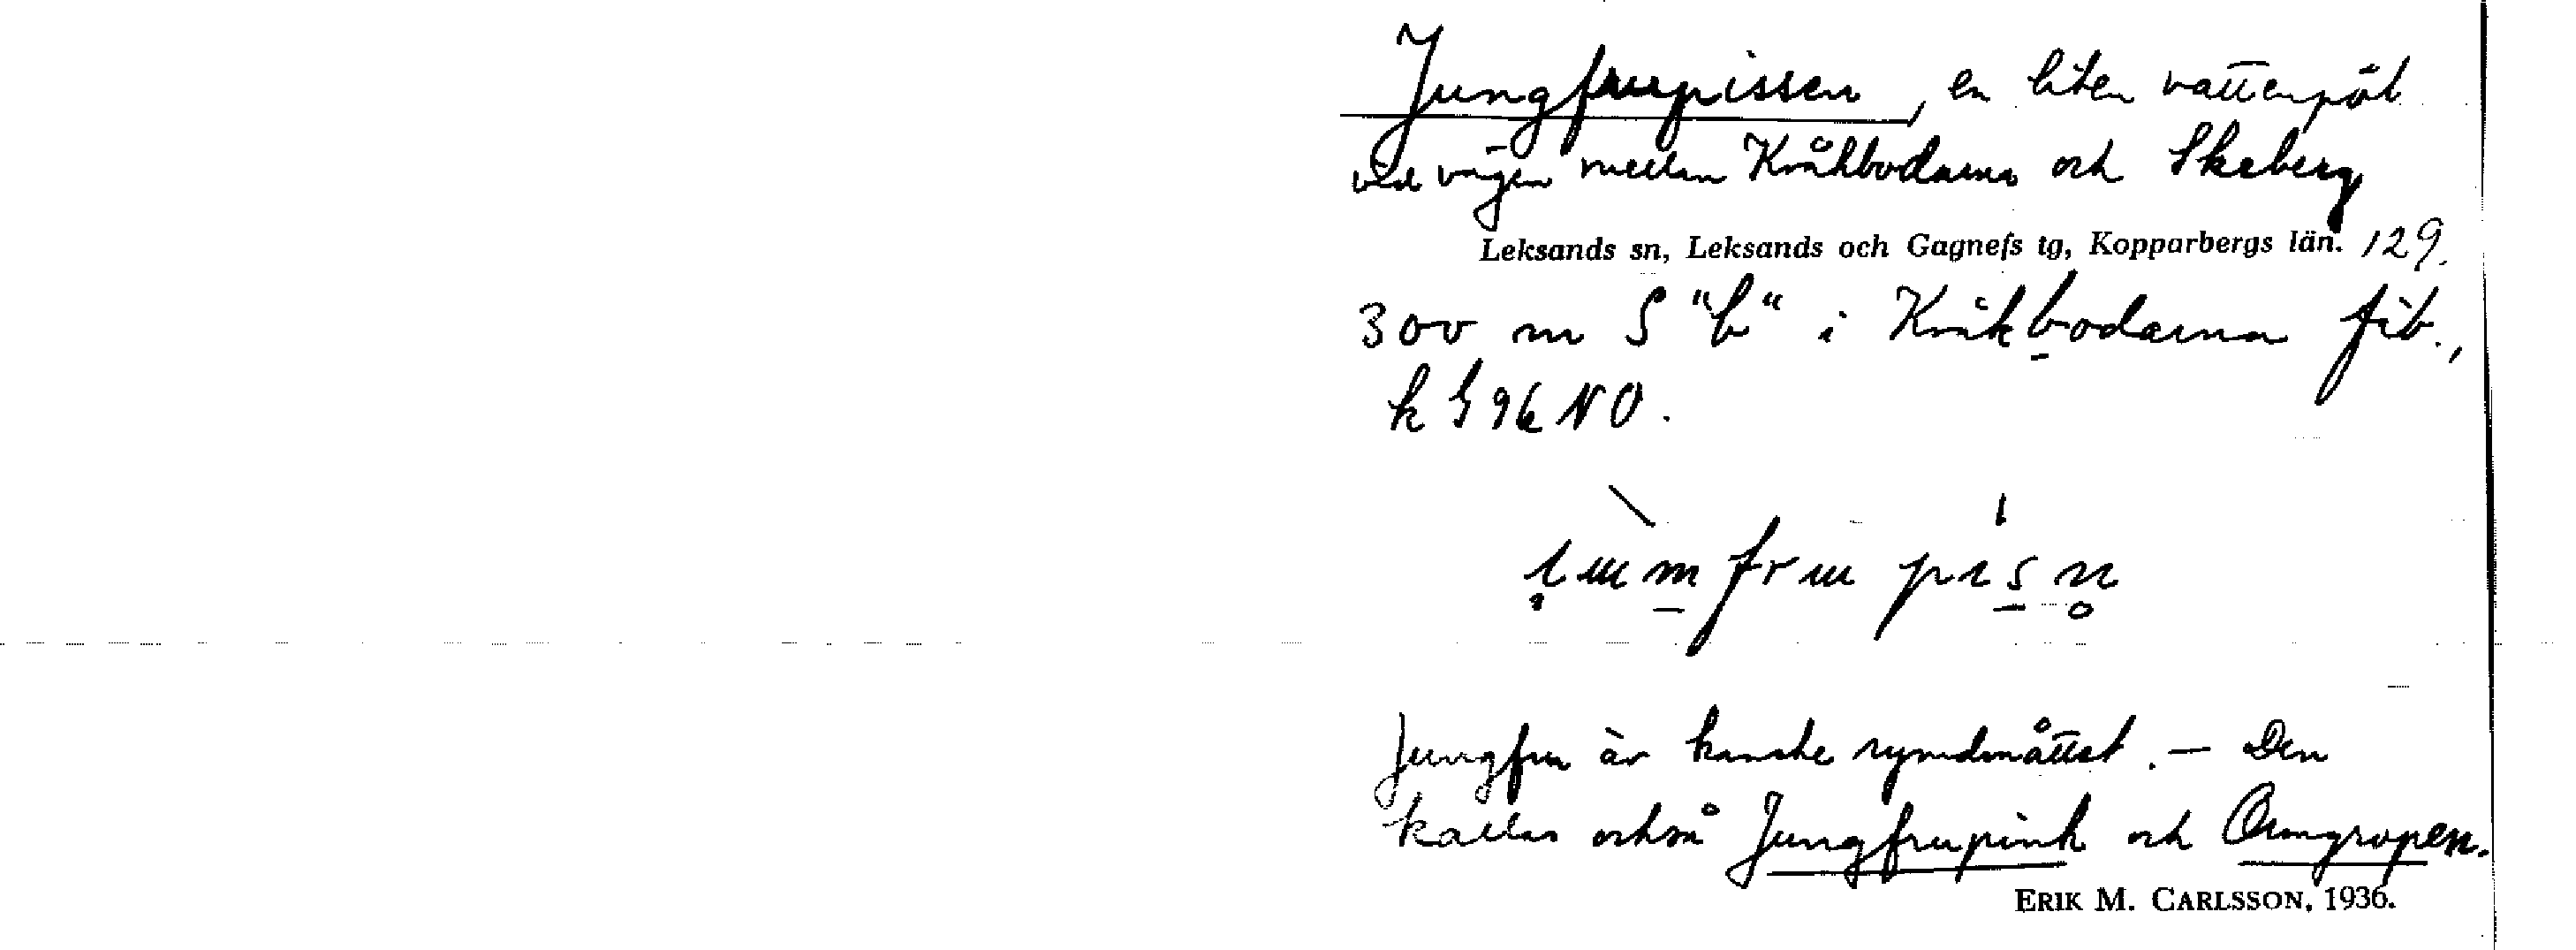 Jungfrupissen, en liten vattenpöl
vid vägen mellan Kråkbodarna och Skeberg
Leksands sn, Leksands och Gagnefs tg, Kopparbergs län. 129.
300 m S "b" i Kråkbodarna fäb.,
k G 96 NO.
ı̣ùm̲frupı's̲n̥
Jungfru är kanske rymdmåttet. — Den
kallas också Jungfrupink och Ormgropen.
ERIK M. CARLSSON, 1936.